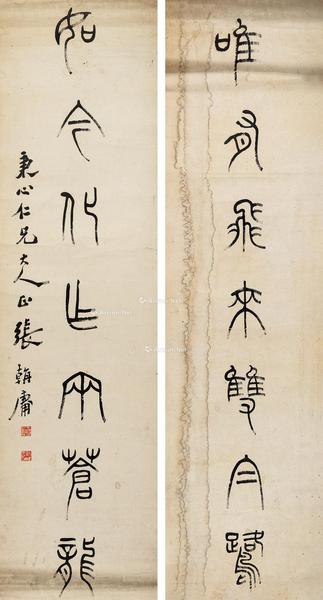 唯有飛來雙白鷺
如今化乍兩蒼龍
秉心仁兄大人正 張朝庸